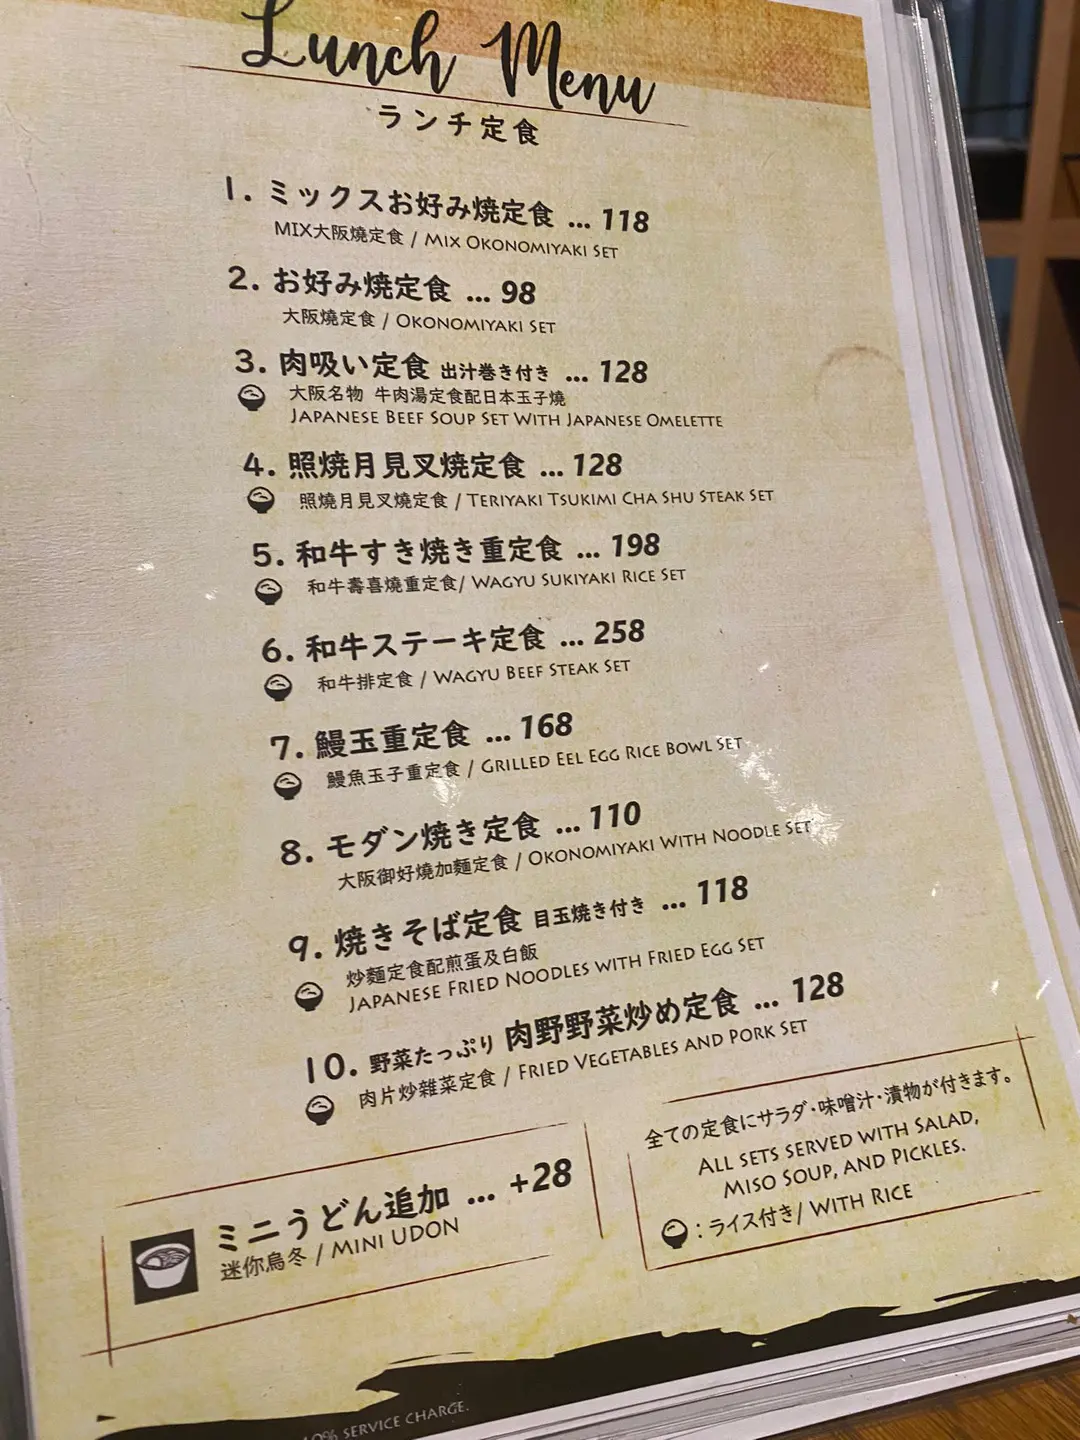 Lunch Menu
ランチ定食
1. ミックスお好み焼定食 ... 118
MIX大阪燒定食 / MIX OKONOMIYAKI SET
2. お好み焼定食 ... 98
大阪燒定食 / OKONOMIYAKI SET
3. 肉吸い定食 出汁巻き付き ... 128
大阪名物 牛肉湯定食配日本玉子燒
JAPANESE BEEF SOUP SET WITH JAPANESE OMELETTE
4. 照焼月見叉焼定食 ... 128
照燒月見叉燒定食 / TERIYAKI TSUKIMI CHA SHU STEAK SET
5. 和牛すき焼き重定食 ... 198
和牛壽喜燒重定食/ WAGYU SUKIYAKI RICE SET
6. 和牛ステーキ定食 ... 258
和牛排定食 / WAGYU BEEF STEAK SET
7. 鰻玉重定食 ... 168
鰻魚玉子重定食 / GRILLED EEL EGG RICE BOWL SET
8. モダン焼き定食 ... 110
大阪御好燒加麵定食 / OKONOMIYAKI WITH NOODLE SET
9. 焼きそば定食 目玉焼き付き ... 118
炒麵定食配煎蛋及白飯
JAPANESE FRIED NOODLES WITH FRIED EGG SET
10. 野菜たっぷり 肉野野菜炒め定食 ... 128
肉片炒雜菜定食 / FRIED VEGETABLES AND PORK SET
全ての定食にサラダ・味噌汁・漬物が付きます。
ALL SETS SERVED WITH SALAD,
MISO SOUP, AND PICKLES.
: ライス付き/ WITH RICE
ミニうどん追加 ... +28
迷你烏冬 / MINI UDON
10% SERVICE CHARGE.